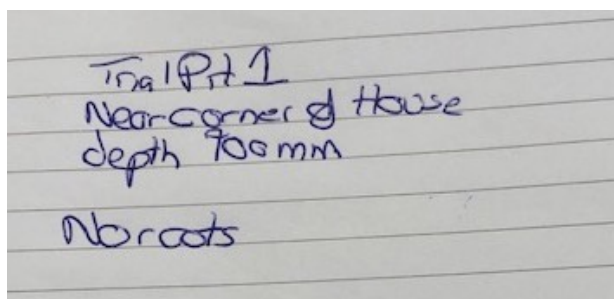 Trial Pit 1
Near corner of House
depth 700mm
No roots